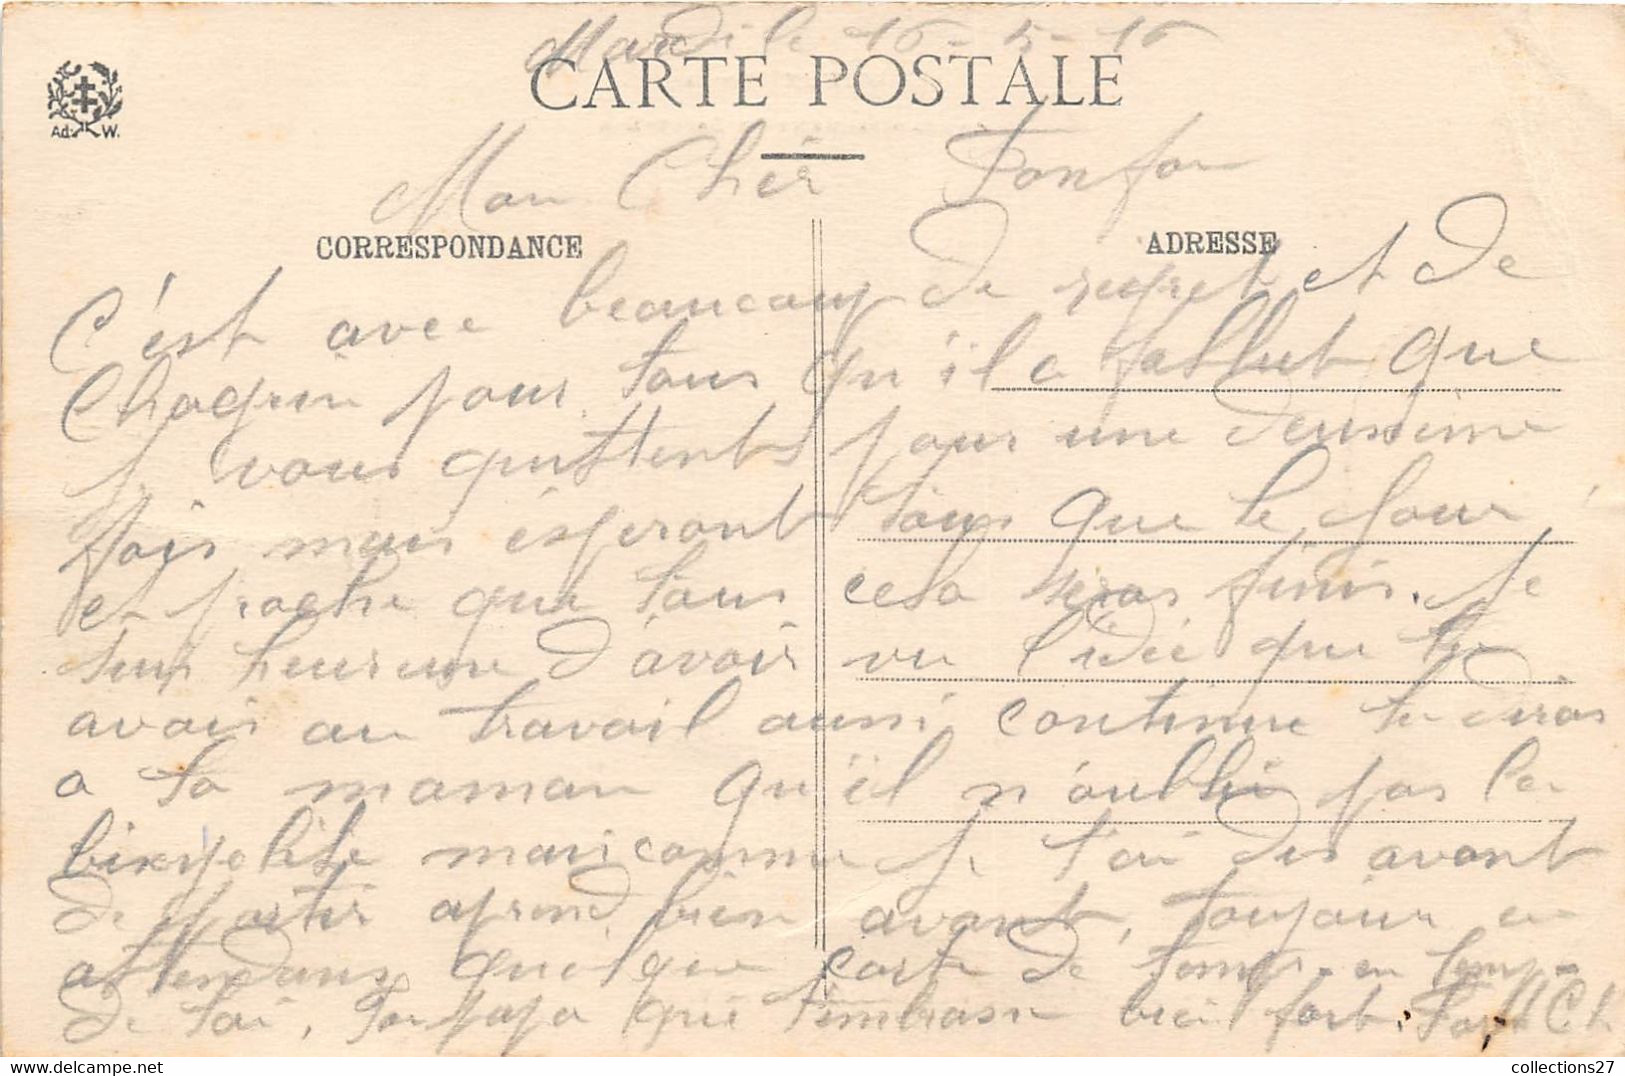 Mardi le 16-5-16
CARTE POSTALE
Ad. W.
Mon Cher Fonfon
CORRESPONDANCE
ADRESSE
C'est avec beaucoup de regret et de
Chagrin pour tous qu'il a fallut que
je vous quittent pour une deussime
fois mais ésperont tous que le jour
et proche que tous cela seras finis. Je
suis heureuse d'avoir vu l'idée que tu
avais au travail aussi continue tu diras
a ta maman qu'il n'oublie pas la
mais comme je t'ai dis avant
de partir aprend bien avant, toujour en
attendans quelque carte de temps-en temp-
de toi, Ton papa qui t'embrasse bien fort.
collections27